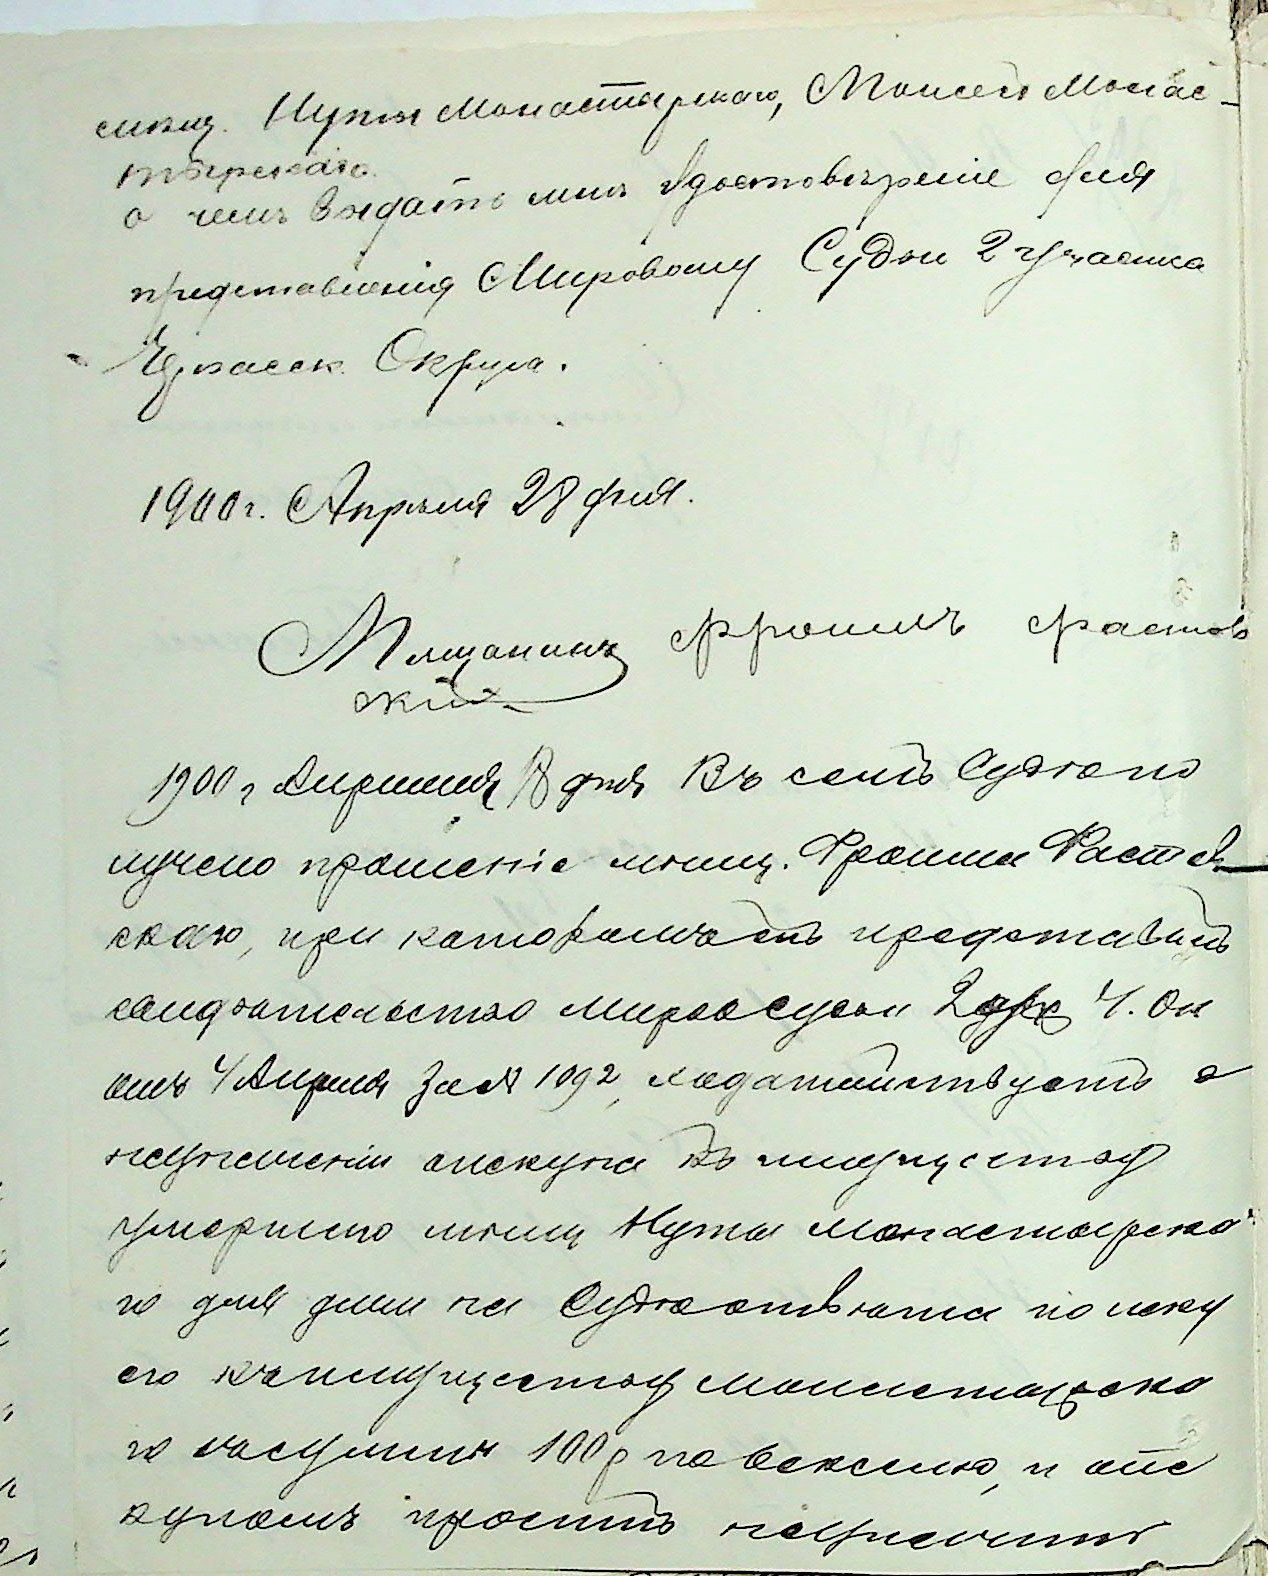 Нухы Монастырскаго, Моисей Монас-
тырскаго
о чемъ выдать мнѣ удостовѣреніе для
представленія Мировому Судьи 2 участка
Черкасск. Округа.
1900 г. Апрѣля 28 дня.
Мѣщанинъ Фроимъ Фастов
скій
1900 г Апреля 18 дня Въ сей Судъ по
лучено прошеніе мѣщ. Фроима Фастов
скаго, при которомъ представилъ
свидѣтельство Миров Судьи 2 Ч. Ок
отъ 4 Апреля за № 1092, ходатайствуетъ о
назначеніи опекуна къ имуществу
умершаго мѣщ Нухы Монастырска
го для дачи на Судѣ отвѣта по иску
его къ имуществу Монастырска
го въ суммѣ 100 р по векселю, и опе
куномъ просить назначить